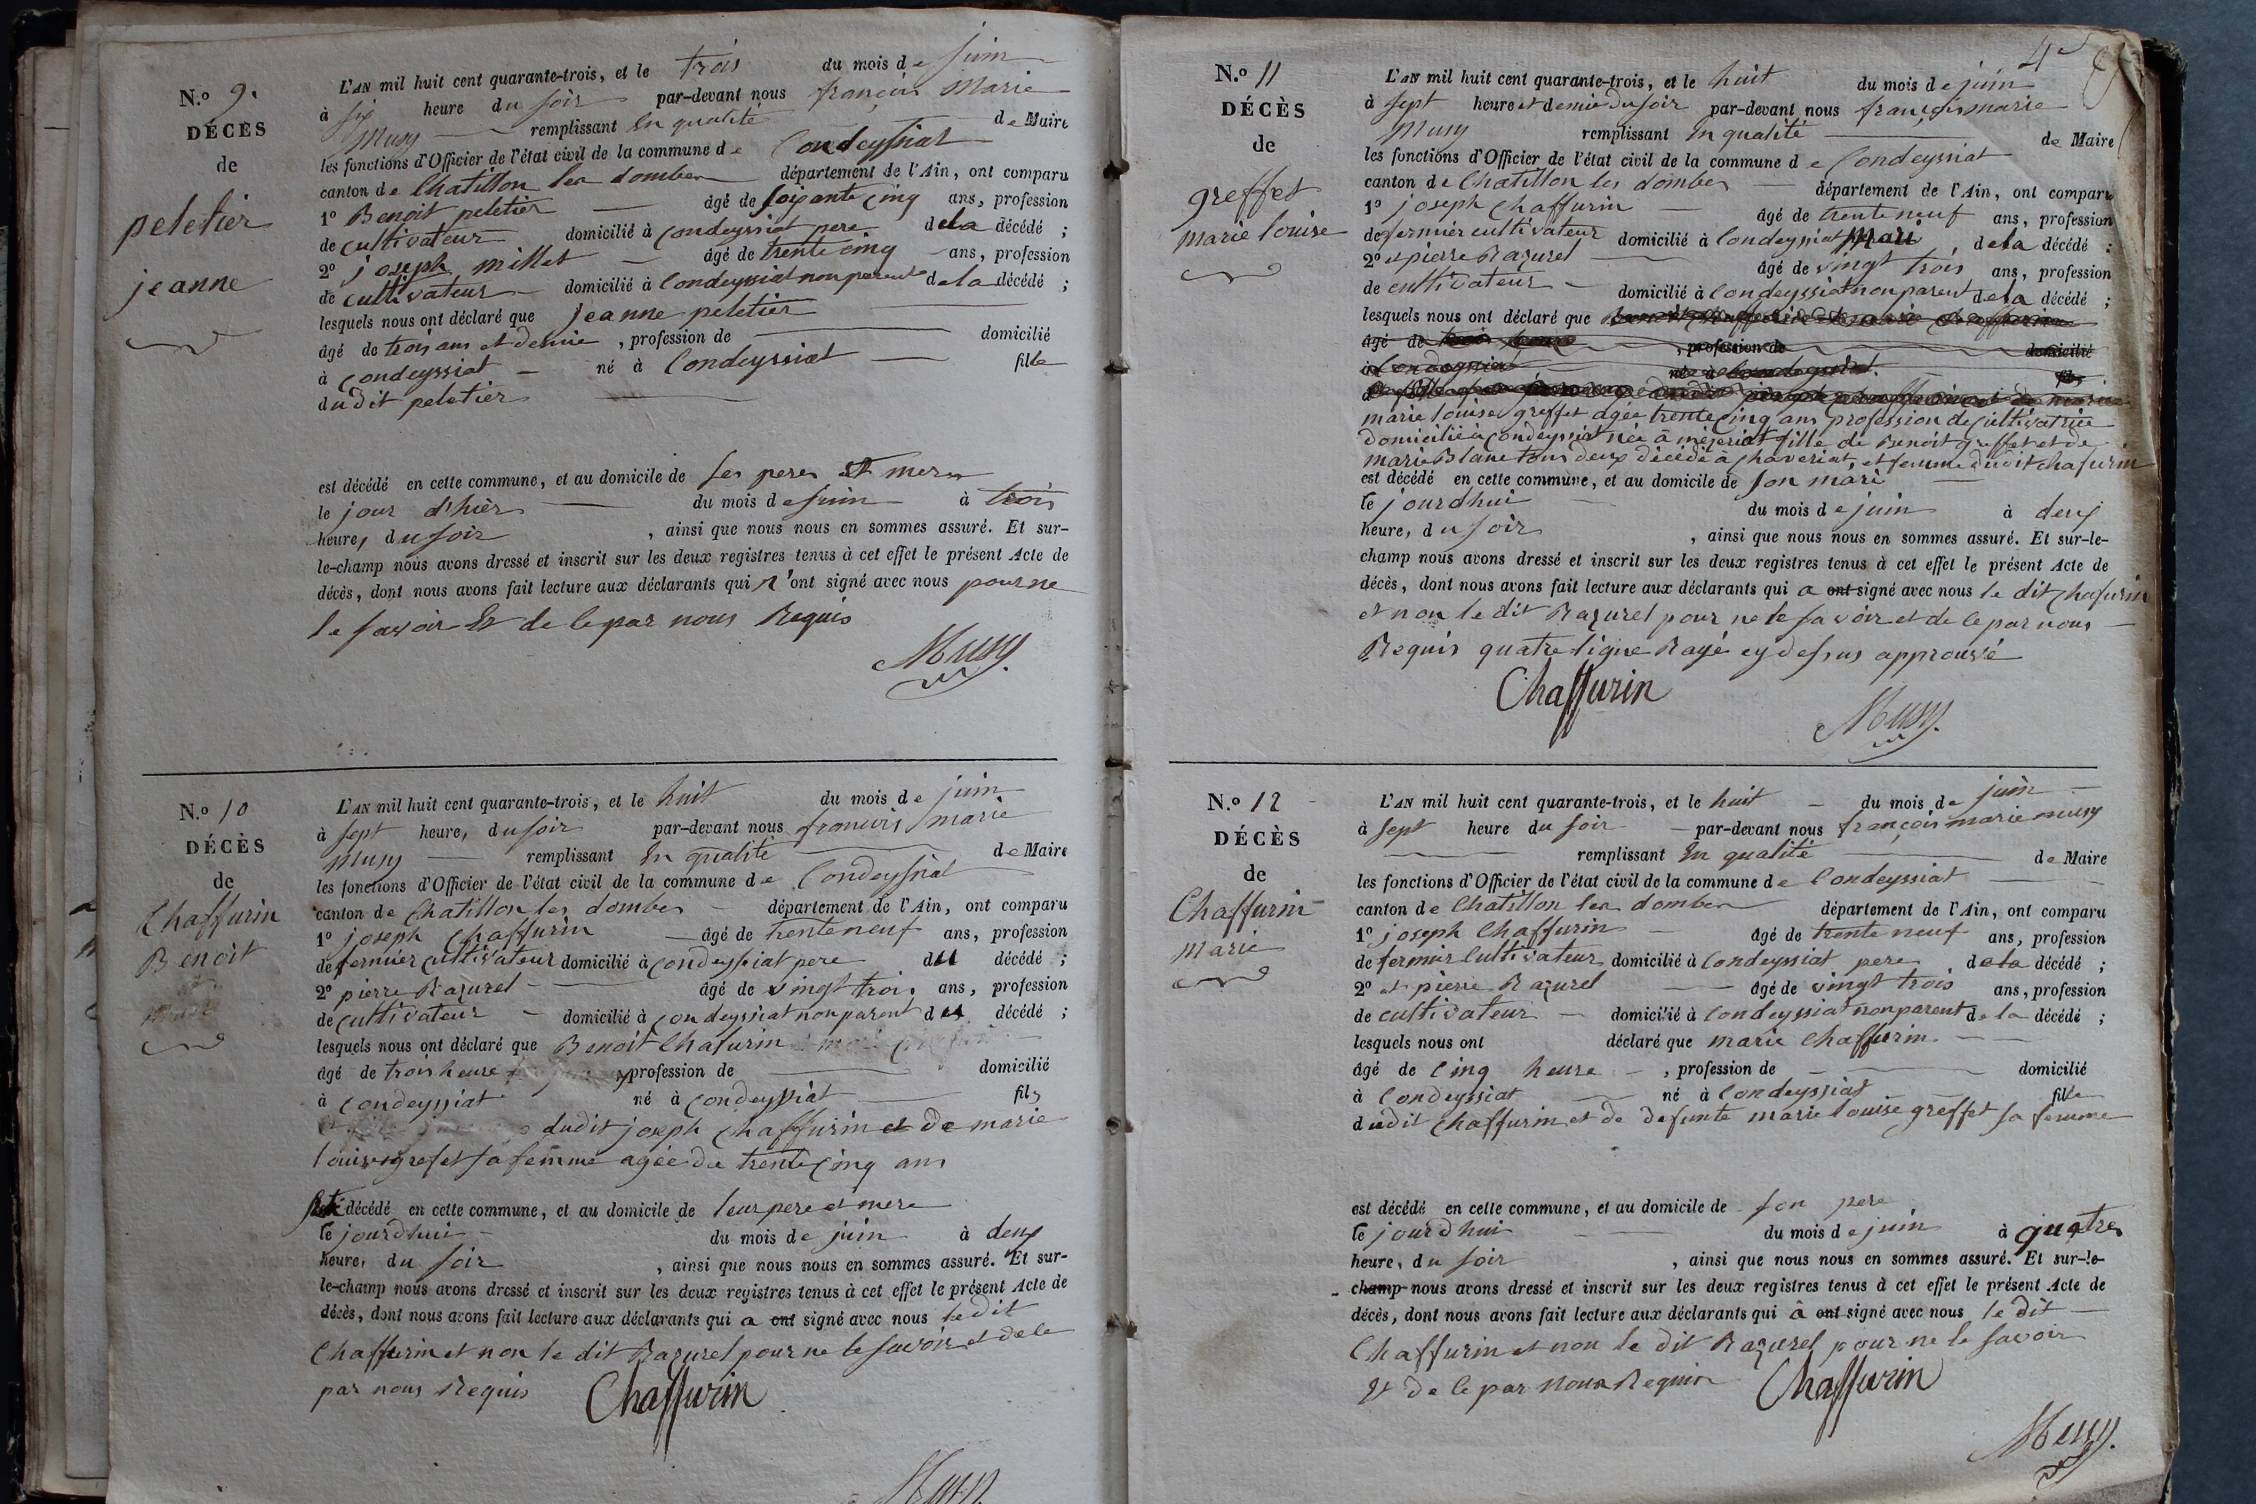 N.o 9.
DÉCÈS
de
peletier
jeanne
L'AN mil huit cent quarante-trois, et le trois du mois de juin
à six heure du soir par-devant nous françois Marie
Musy remplissant En qualité de Maire
les fonctions d'Officier de l'état civil de la commune de Condeyssiat
canton de Chatillon les dombes département de l'Ain, ont comparu
1o Benoit peletier âgé de soixante cinq ans, profession
de cultivateur domicilié à condeyssiat pere de la décédé ;
2o joseph millet âgé de trente cinq ans, profession
de cultivateur domicilié à Condeyssiat non parent de la décédé ;
lesquels nous ont déclaré que jeanne peletier
âgé de trois ans et demie , profession de domicilié
à condeyssiat né à Condeyssiat fille
dudit peletier
est décédé en cette commune, et au domicile de ses peres et meres
le jour d'hier du mois de juin à trois
heure, du soir , ainsi que nous nous en sommes assuré. Et sur-
le-champ nous avons dressé et inscrit sur les deux registres tenus à cet effet le présent Acte de
décès, dont nous avons fait lecture aux déclarants qui n'ont signé avec nous pour ne
le savoir Et de le par nous Requis
Musy
N.o 10
DÉCÈS
de
Chaffurin
Benoit
L'AN mil huit cent quarante-trois, et le huit du mois de juin
à sept heure, du soir par-devant nous francois marie
musy remplissant En qualité de Maire
les fonctions d'Officier de l'état civil de la commune de Condeyssiat
canton de Chatillon les dombes département de l'Ain, ont comparu
1o joseph Chaffurin âgé de trente neuf ans, profession
de fermier cultivateur domicilié à condeyssiat pere du décédé ;
2o pierre Razurel âgé de vingt trois ans, profession
de cultivateur domicilié à condeyssiat non parent du décédé ;
lesquels nous ont déclaré que Benoit Chafurin
âgé de trois heure profession de domicilié
à condeyssiat né à condeyssiat fils
dudit joseph Chaffurin et de marie
louise grefet sa femme agée de trente cinq ans
décédé en cette commune, et au domicile de leur pere et mere
le jourdhui du mois de juin à deux
heure, du soir , ainsi que nous nous en sommes assuré. Et sur-
le-champ nous avons dressé et inscrit sur les deux registres tenus à cet effet le présent Acte de
décès, dont nous avons fait lecture aux déclarants qui a ont signé avec nous ledit
Chaffurin et non le dit Razurel pour ne le savoir et de le
par nous Requis Chaffurin
Musy
4
N.o 11
DÉCÈS
de
greffet
marie louise
L'AN mil huit cent quarante-trois, et le huit du mois de juin
à sept heure et demie du soir par-devant nous françois marie
musy remplissant En qualité de Maire
les fonctions d'Officier de l'état civil de la commune de Condeyssiat
canton de Chatillon les dombes département de l'Ain, ont comparu
1o joseph Chaffurin âgé de trente neuf ans, profession
de fermier cultivateur domicilié à Condeyssiat Mari , de la décédé ;
2o et pierre Razurel âgé de vingt trois ans, profession
de cultivateur domicilié à Condeyssiat non parent de la décédé ;
lesquels nous ont déclaré que
âgé de , profession de domicilié
né à
marie louise greffet agée trente cinq ans profession de cultivatrice
domicilié à condeyssiat née à mézériat fille de Benoit greffet et de
marie Blanc tous deux décédé à Chaveriat, et femme dudit Chafurin
est décédé en cette commune, et au domicile de son mari
le jourdhui du mois de juin à deux
heure, du soir , ainsi que nous nous en sommes assuré. Et sur-le-
champ nous avons dressé et inscrit sur les deux registres tenus à cet effet le présent Acte de
décès, dont nous avons fait lecture aux déclarants qui a ont signé avec nous le dit Chafurin
et non le dit Razurel pour ne le savoir et de le par nous
Requis quatre ligne Rayé cy dessus approuvé
Chaffurin
Musy
N.o 12
DÉCÈS
de
Chaffurin
marie
L'AN mil huit cent quarante-trois, et le huit du mois de juin
à sept heure du soir par-devant nous françois marie musy
remplissant En qualité de Maire
les fonctions d'Officier de l'état civil de la commune de Condeyssiat
canton de Chatillon les dombes département de l'Ain, ont comparu
1o joseph Chaffurin âgé de trente neuf ans, profession
de fermier Cultivateur domicilié à Condeyssiat pere de la décédé ;
2o et pierre Razurel âgé de vingt trois ans, profession
de cultivateur domicilié à Condeyssiat non parent de la décédé ;
lesquels nous ont déclaré que marie Chaffurin
âgé de Cinq heure , profession de domicilié
à Condeyssiat né à Condeyssiat fille
dudit Chaffurin et de defunte marie louise greffet sa femme
est décédé en cette commune, et au domicile de son pere
le jourdhui du mois de juin à quatre
heure, du soir , ainsi que nous nous en sommes assuré. Et sur-le-
champ nous avons dressé et inscrit sur les deux registres tenus à cet effet le présent Acte de
décès, dont nous avons fait lecture aux déclarants qui à ont signé avec nous le dit
Chaffurin et non le dit Razurel pour ne le savoir
Et de le par nous Requis Chaffurin
Musy